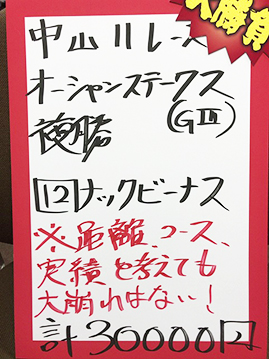 大勝負
中山11レース
オーシャンステークス
複勝 (GⅢ)
12 ナックビーナス
※距離、コース、
実績を考えても
大崩れはない！
計30000円